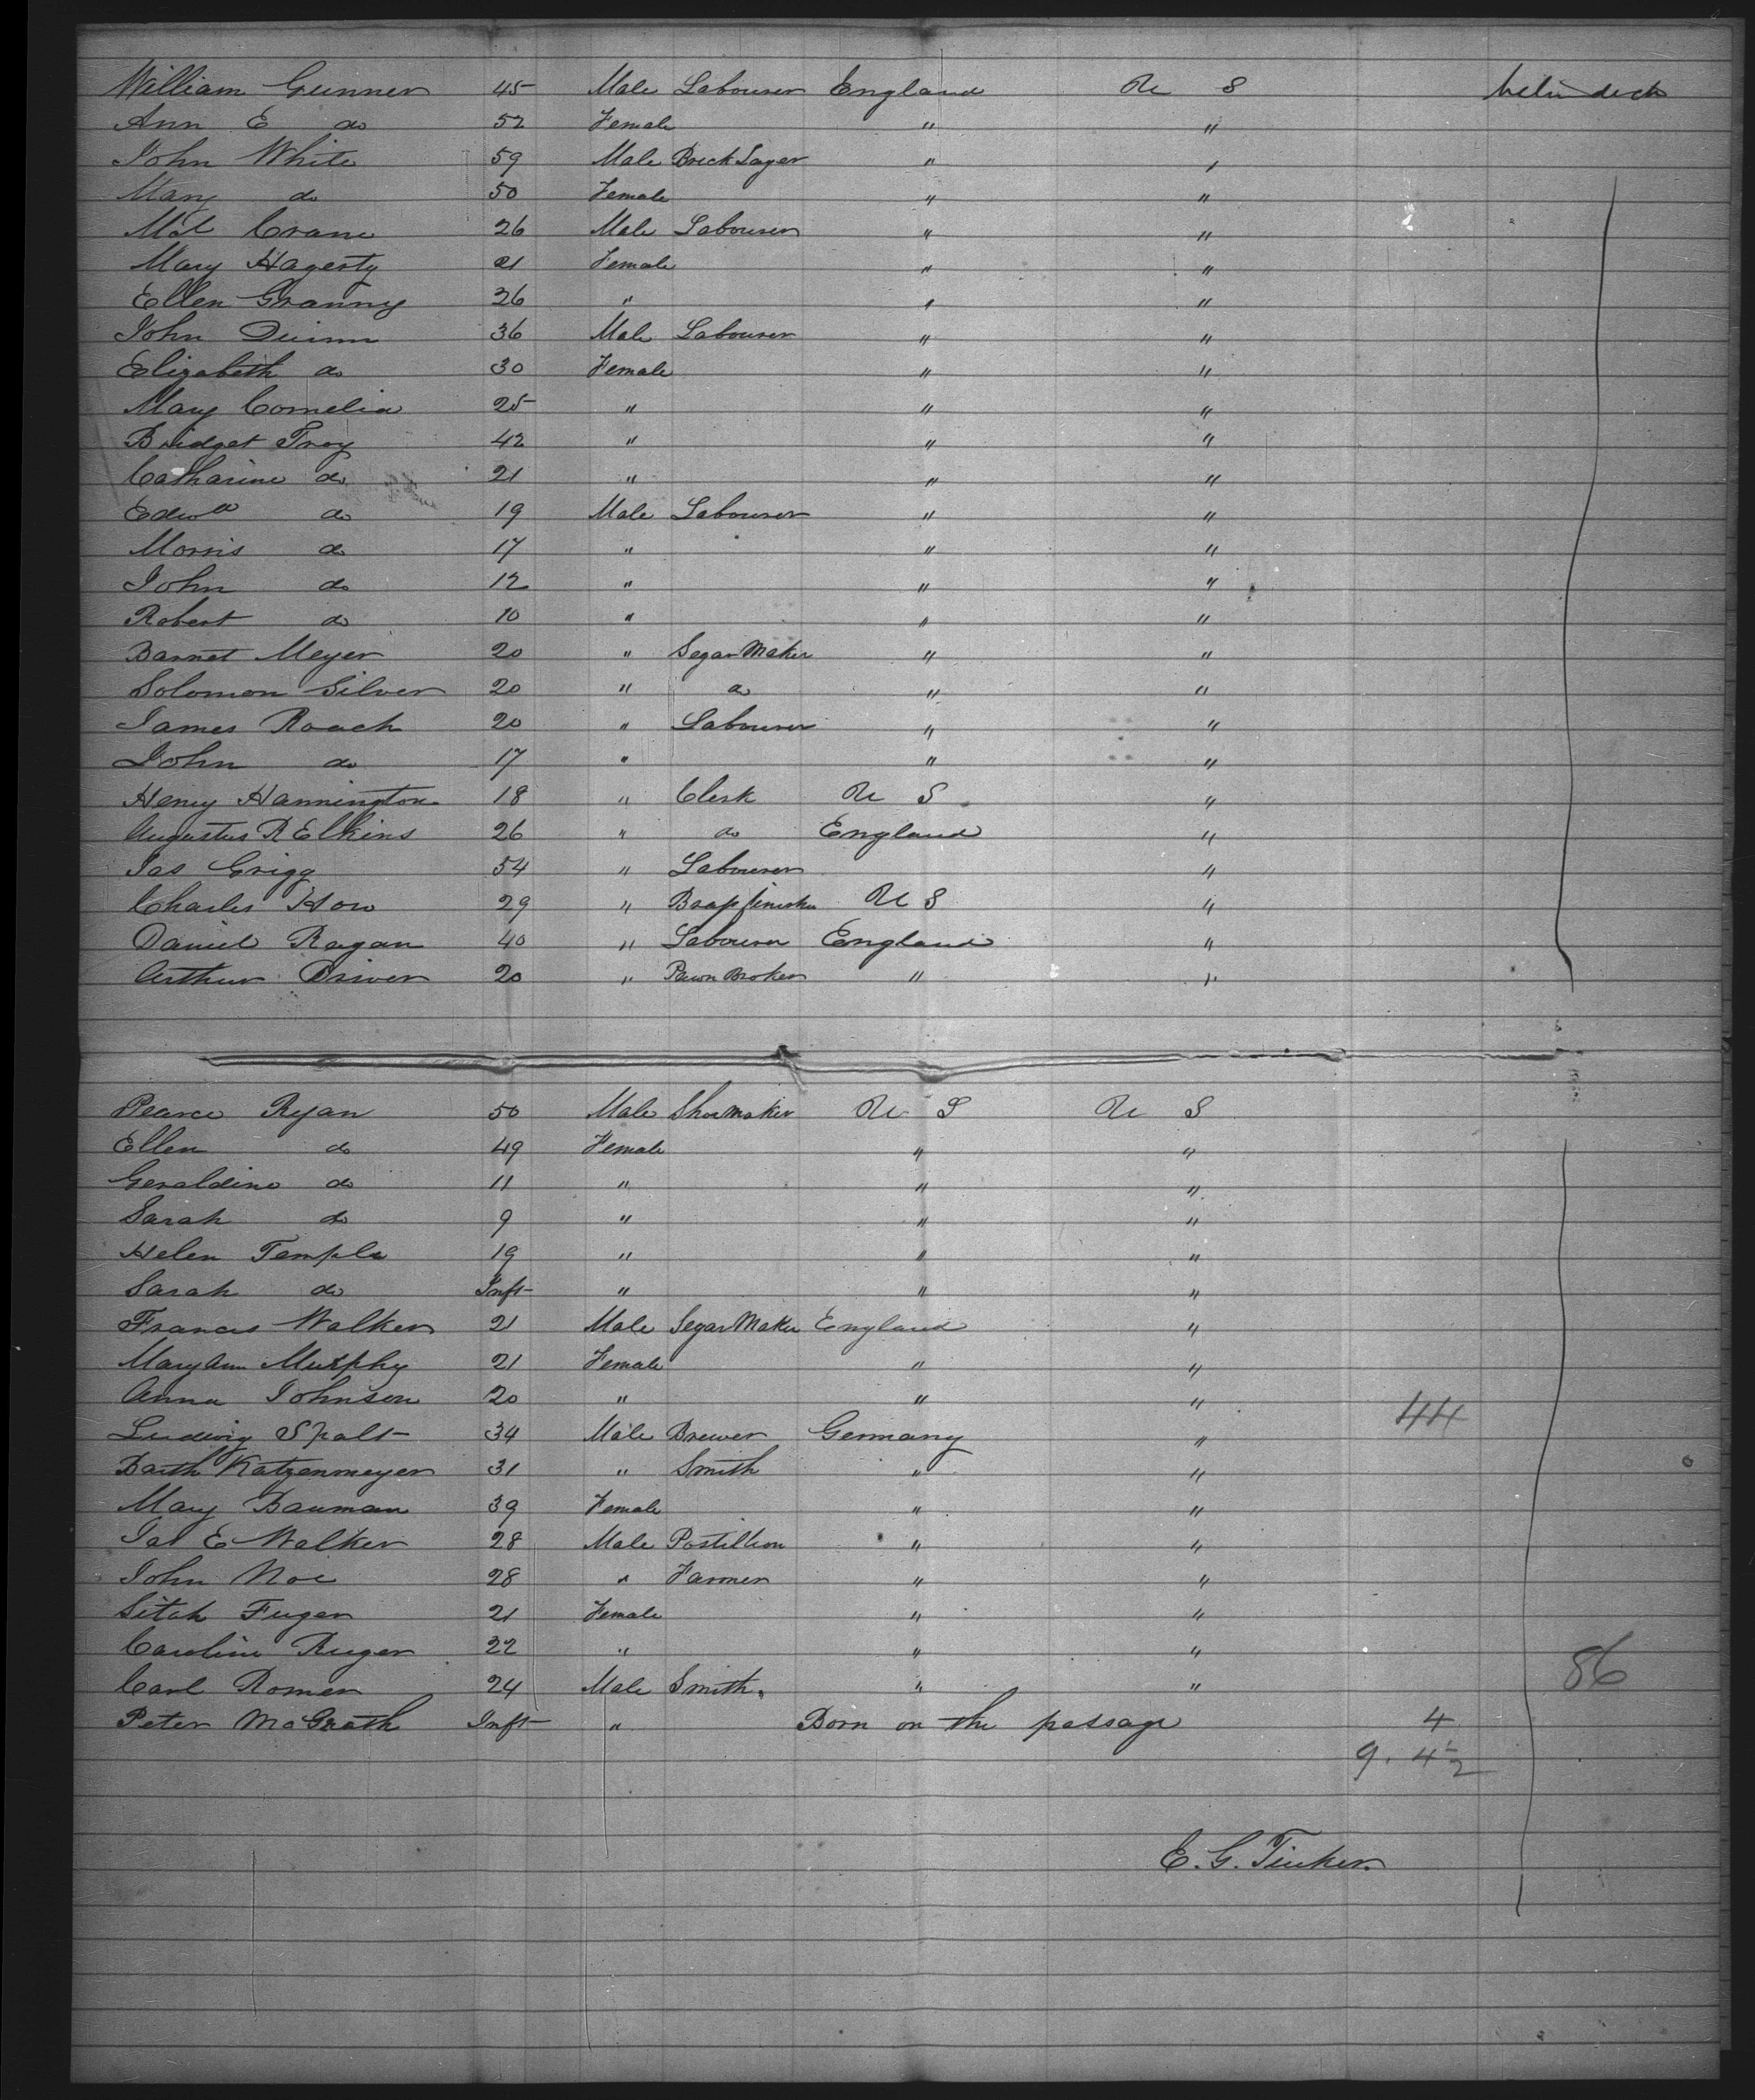 William Gunner 45 Male Labourer England U S
Ann E do 52 Female " "
John White 59 Male Brick Layer " "
Mary do 50 Female " "
Crane 26 Male Labourer " "
Mary Hagerty 21 Female " "
Ellen Granny 26 " " "
John Quinn 36 Male Labourer " "
Elizabeth do 30 Female " "
Mary Cornelia 25 " " "
Bridget Troy 42 " " "
Catharine do 21 " " "
Edwd do 19 Male Labourer " "
Morris do 17 " " "
John do 12 " " "
Robert do 10 " " "
Barnet Meyer 20 " Segar Maker " "
Solomon Silver 20 " do " "
James Roach 20 " Labourer " "
John do 17 " " "
Henry Hannington 18 " Clerk U S "
Augustus R Elkins 26 " do England "
Jas Grigg 54 " Labourer "
Charles How 29 " U S "
Daniel Ragan 40 " Labourer England "
Arthur Driver 20 " Pawn Broker " "
Pearce Ryan 50 Male Shoe Maker U S U S
Ellen do 49 Female " "
Geraldine do 11 " " "
Sarah do 9 " " "
Helen Temple 19 " " "
Sarah do Inft " " "
Francis Walker 21 Male Segar Maker England "
Mary Ann Murphy 21 Female " "
Anna Johnson 20 " " " 44
Ludwig Spalt 34 Male Brewer Germany "
Barth Katzenmeyer 31 " Smith " "
Mary Bauman 39 Female " "
Jas E Walker 28 Male Postillion " "
John Noe 28 " Farmer " "
Sitah Fuger 21 Female " "
Caroline Ruger 22 " " "
Carl Romer 24 Male Smith " " 86
Peter McGrath Inft " Born on the passage 4
9. 4
E. G. Tinker.